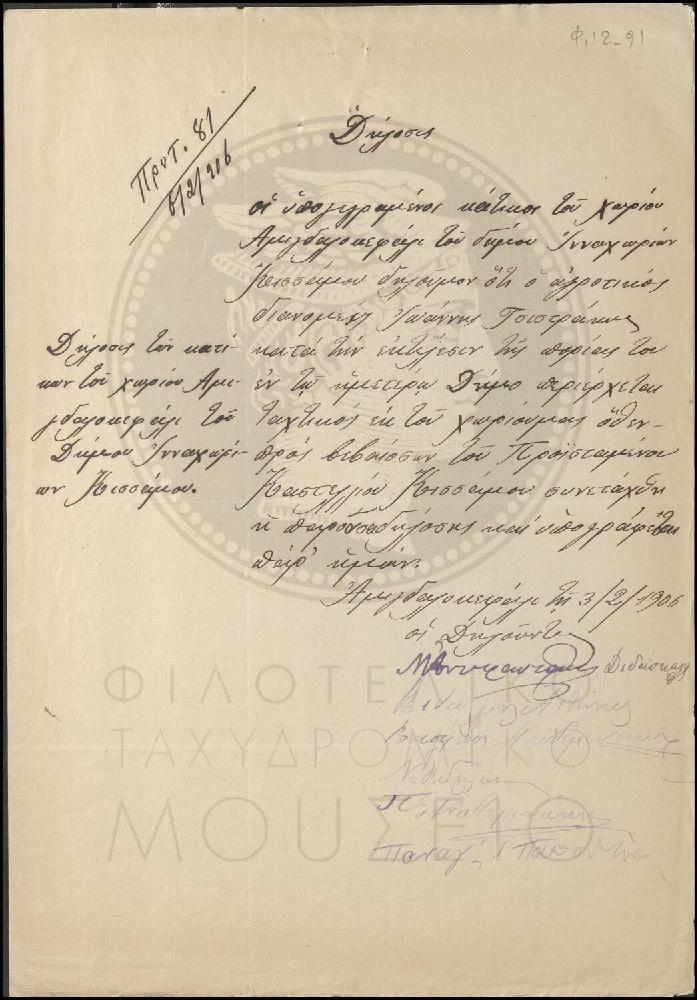 Φ.12-91
Πρωτ. 81
6/2/906
Δήλοσις
οἱ ὑπογεγραμένοι κάτικοι τοῦ χωρίου
Αμιγδαλοκεφάλι τοῦ δήμου Ἰνναχωρίων
Κισσάμου δηλοῦμον ὅτι ὁ ἀγροτικός
διανομεύς Ἰωάννης
κατά τήν ἐκτέλεσιν τῆς πορίας του
ἐν τῷ ἡμετέρῳ Δήμο περιέρχεται
ταχτικός ἐκ τοῦ χωρίουμας ὅθεν-
πρός βεβαίοσιν τοῦ Προϊσταμένου
Καστελλίου Κισσάμου συνετάχθη
ἡ παροῦσα δηλόσης καί ὑπογράφεται
παρ' ἡμῶν.
Δήλοσις τῶν κατί-
κων τοῦ χωρίου Αμι-
γδαλοκεφάλι τοῦ
Δήμου Ἰνναχωρί-
ων Κισσάμου.
Ἀμιγδαλοκεφάλι τῇ 3/2/1906
οἱ Δηλοῦντες
Διδάσκαλος
Παναγ.
ΦΙΛΟΤΕΛΙΚΟ
ΤΑΧΥΔΡΟΜΙΚΟ
ΜΟΥΣΕΙΟ